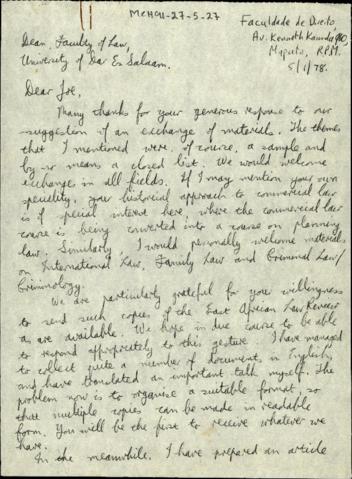 MCH91-27-5-27
Faculdade de Direito
Av. Kenneth Kaunda 960,
Maputo, R.P.M.
5/1/78.
Dean, Faculty of Law,
University of Dar Es Salaam.
Dear Joe,
Many thanks for your generous response to our
suggestion of an exchange of materials. The themes
that I mentioned were, of course, a sample and
by no means a closed list. We would welcome
exchange in all fields. If I may mention your own
speciality, your historical approach to commercial law
is of special interest here, where the commercial law
course is being converted into a course on planning
law. Similarly, I would personally welcome materials
on International Law, Family Law and Criminal Law/
Criminology.
We are particularly grateful for your willingness
to send such copies of the East African Law Review
as are available. We hope in due course to be able
to respond appropriately to this gesture. I have managed
to collect quite a number of documents, in English,
and have translated an important talk myself. The
problem now is to organise a suitable format, so
that multiple copies can be made in readable
form. You will be the first to receive whatever we
have.
In the meanwhile, I have prepared an article